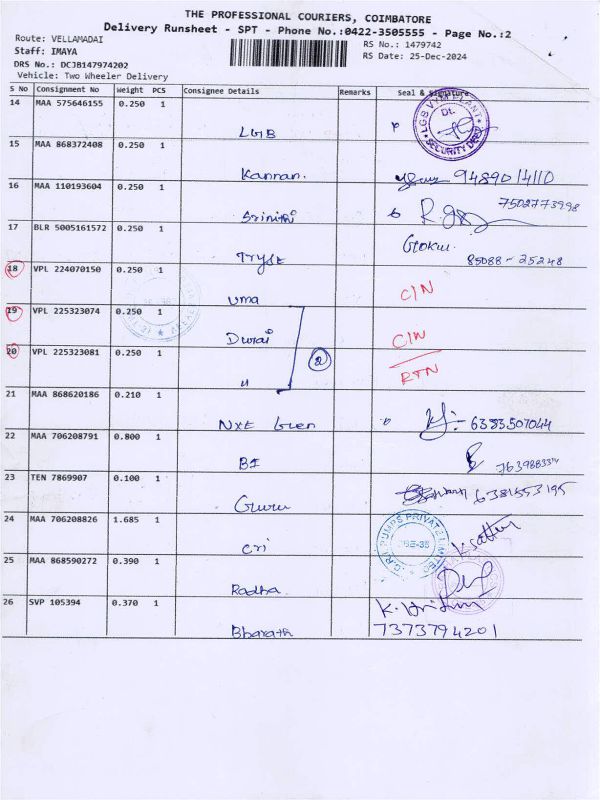 THE PROFESSIONAL COURIERS, COIMBATORE
Delivery Runsheet - SPT - Phone No.:0422-3505555 - Page No.:2
Route: VELLAMADAI
RS No.: 1479742
Staff: IMAYA
RS Date: 25-Dec-2024
DRS No.: DCJB147974202
Vehicle: Two Wheeler Delivery
S No Consignment No Weight PCS Consignee Details Remarks Seal & Signature
14 MAA 575646155 0.250 1
LGB
SECURITY DEPT
15 MAA 868372408 0.250 1
Kannan. 9489014110
16 MAA 110193604 0.250 1
Srinithi 7502773998
17 BLR 5005161572 0.250 1
TRYSE Gokul. 85088-25248
18 VPL 224070150 0.250 1
Uma C/N
19 VPL 225323074 0.250 1
Durai C/N
20 VPL 225323081 0.250 1
" 2 RTN
21 MAA 868620186 0.210 1
NXE Gren 6383507044
22 MAA 706208791 0.800 1
BI
23 TEN 7869907 0.100 1
Guru
24 MAA 706208826 1.685 1
cri
PUMPS PRIVATE LIMITED
25 MAA 868590272 0.390 1
Radha
26 SVP 105394 0.370 1
Bharath 7373794201